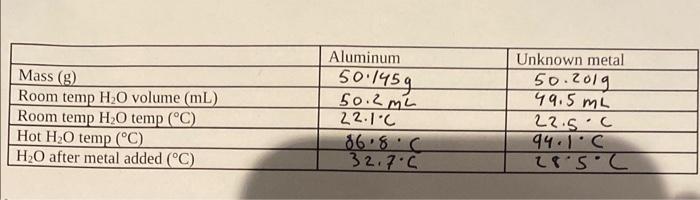 Aluminum Unknown metal
Mass (g) 50.145g 50.201g
Room temp H₂O volume (mL) 50.2 mL 49.5 mL
Room temp H₂O temp (°C) 22.1°C 22.5°C
Hot H₂O temp (°C) 86.8°C 94.1°C
H₂O after metal added (°C) 32.7°C 28.5°C